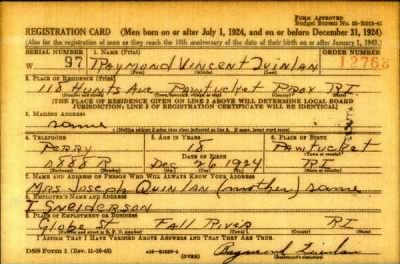 FORM APPROVED
REGISTRATION CARD (Men born on or after July 1, 1924, and on or before December 31, 1924)
(Also for the registration of men as they reach the 18th anniversary of the date of their birth on or after January 1, 1943.)
SERIAL NUMBER 1. NAME (Print) ORDER NUMBER
W 97 RAYMOND VINCENT QUINLAN 12768
(First) (Middle) (Last)
2. PLACE OF RESIDENCE (Print)
118 HUNTS AVE PAWTUCKET PROV RI
[THE PLACE OF RESIDENCE GIVEN ON LINE 2 ABOVE WILL DETERMINE LOCAL BOARD
JURISDICTION; LINE 2 OF REGISTRATION CERTIFICATE WILL BE IDENTICAL]
3. MAILING ADDRESS
Same
4. TELEPHONE 5. AGE IN YEARS 6. PLACE OF BIRTH
PERRY 18 PAWTUCKET
DATE OF BIRTH
0888R Dec 26 1924 RI
7. NAME AND ADDRESS OF PERSON WHO WILL ALWAYS KNOW YOUR ADDRESS
MRS JOSEPH QUINLAN (mother) same
8. EMPLOYER'S NAME AND ADDRESS
I SNEIDERSON
9. PLACE OF EMPLOYMENT OR BUSINESS
Globe St FALL RIVER RI
I AFFIRM THAT I HAVE VERIFIED ABOVE ANSWERS AND THAT THEY ARE TRUE.
DSS Form 1 (OVER) Raymond Quinlan